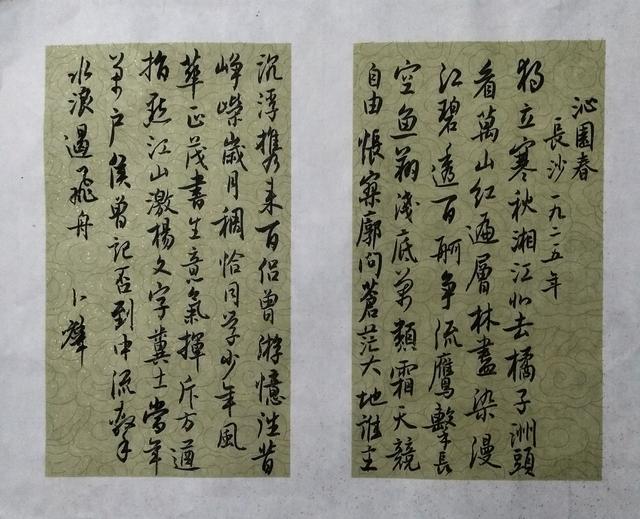 沁園春
長沙 一九二五年
獨立寒秋湘江北去橘子洲頭
看萬山紅遍層林盡染漫
江碧透百舸争流鷹擊長
空魚翔淺底萬類霜天競
自由悵寥廓问蒼茫大地誰主
沉浮携来百侣曾游憶往昔
崢嶸歲月稠恰同学少年風
華正茂書生意氣揮斥方遒
指点江山激楊文字糞土當年
萬户侯曾記否到中流擊
水浪遏飛舟